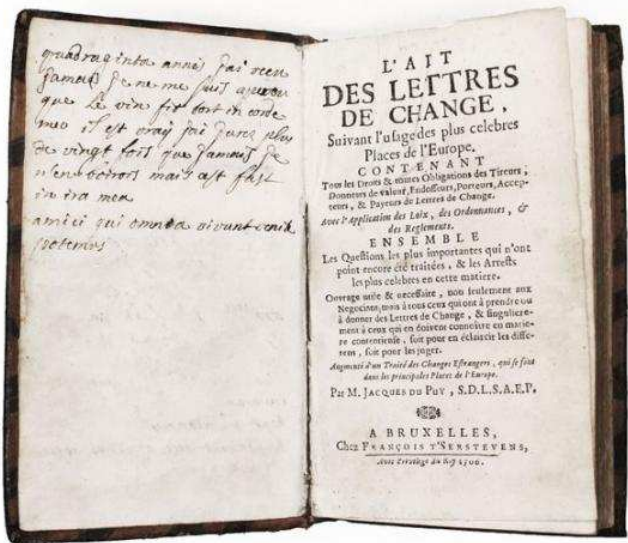 quadraginta annis j'ai vecu
Jamais Je ne me suis
que Le vin fit tort in corde
meo il est vray j'ai Juré plus
de vingt fois que Jamais Je
n'en boirois mais cest fait
in ira mea
amici qui omnia vivunt
potemus
L'AIT
DES LETTRES
DE CHANGE,
Suivant l'usage des plus celebres
Places de l'Europe.
CONTENANT
Tous les Droits & toutes Obligations des Tireurs,
Donneurs de valeur, Endosseurs, Porteurs, Accep-
teurs, & Payeurs de Lettres de Change.
Avec l'Application des Loix, des Ordonnances, &
des Reglemens.
ENSEMBLE
Les Questions les plus importantes qui n'ont
point encore été traitées, & les Arrests
les plus celebres en cette matiere.
Ouvrage utile & necessaire, non seulement aux
Negocians, mais à tous ceux qui ont à prendre ou
à donner des Lettres de Change, & singuliere-
ment à ceux qui en doivent connoître en matie-
re contentieuse, soit pour en éclaircir les diffe-
rens, soit pour les juger.
Augmenté d'un Traité des Changes Estrangers, qui se font
dans les principales Places de l'Europe.
Par M. JACQUES DU PUY, S.D.L.S.A.E.P.
A BRUXELLES,
Chez FRANÇOIS T'SERSTEVENS,
Avec Privilege du Roy 1706.